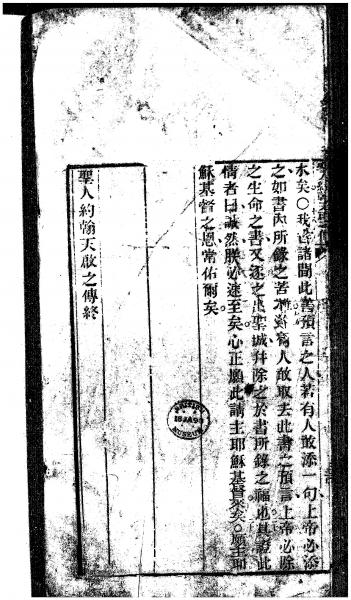 水矣○我告諸聞此書預言之人若有人敢添一句上帝必添
之如書內所錄之苦又若有人敢取去此書之預言上帝必除
之生命之書又逐之出聖城幷除之於書所錄之福也具證此
情者曰誠然朕必速至矣心正願此請主耶穌基督來矣○願主耶
穌基督之恩常佑爾矣
聖人約翰天啟之傳終
MUSEUM